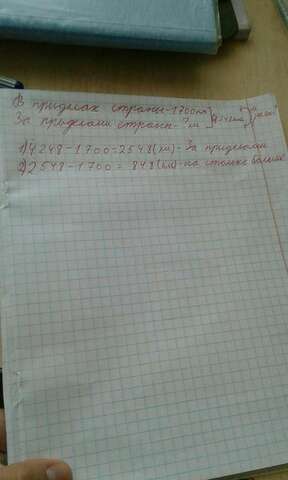 В приделах страны-1700км
За приделами страны-?км 4248км
1)4248-1700=2548(км)-За приделами
2)2548-1700= 848(км)-на столько больше